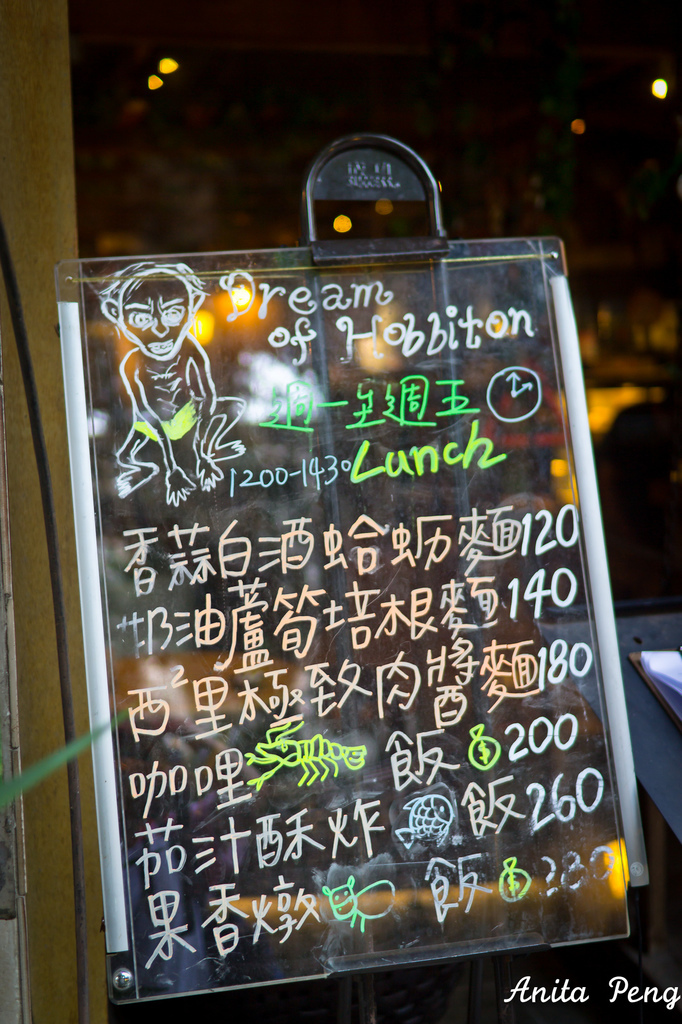 Dream
of Hobbiton
週一至週五
1200-1430 Lunch
香蒜白酒蛤蛎麵120
奶油蘆筍培根麵140
西西里極致肉醬麵180
咖哩飯200
茄汁酥炸飯260
果香燉飯280
Anita Peng